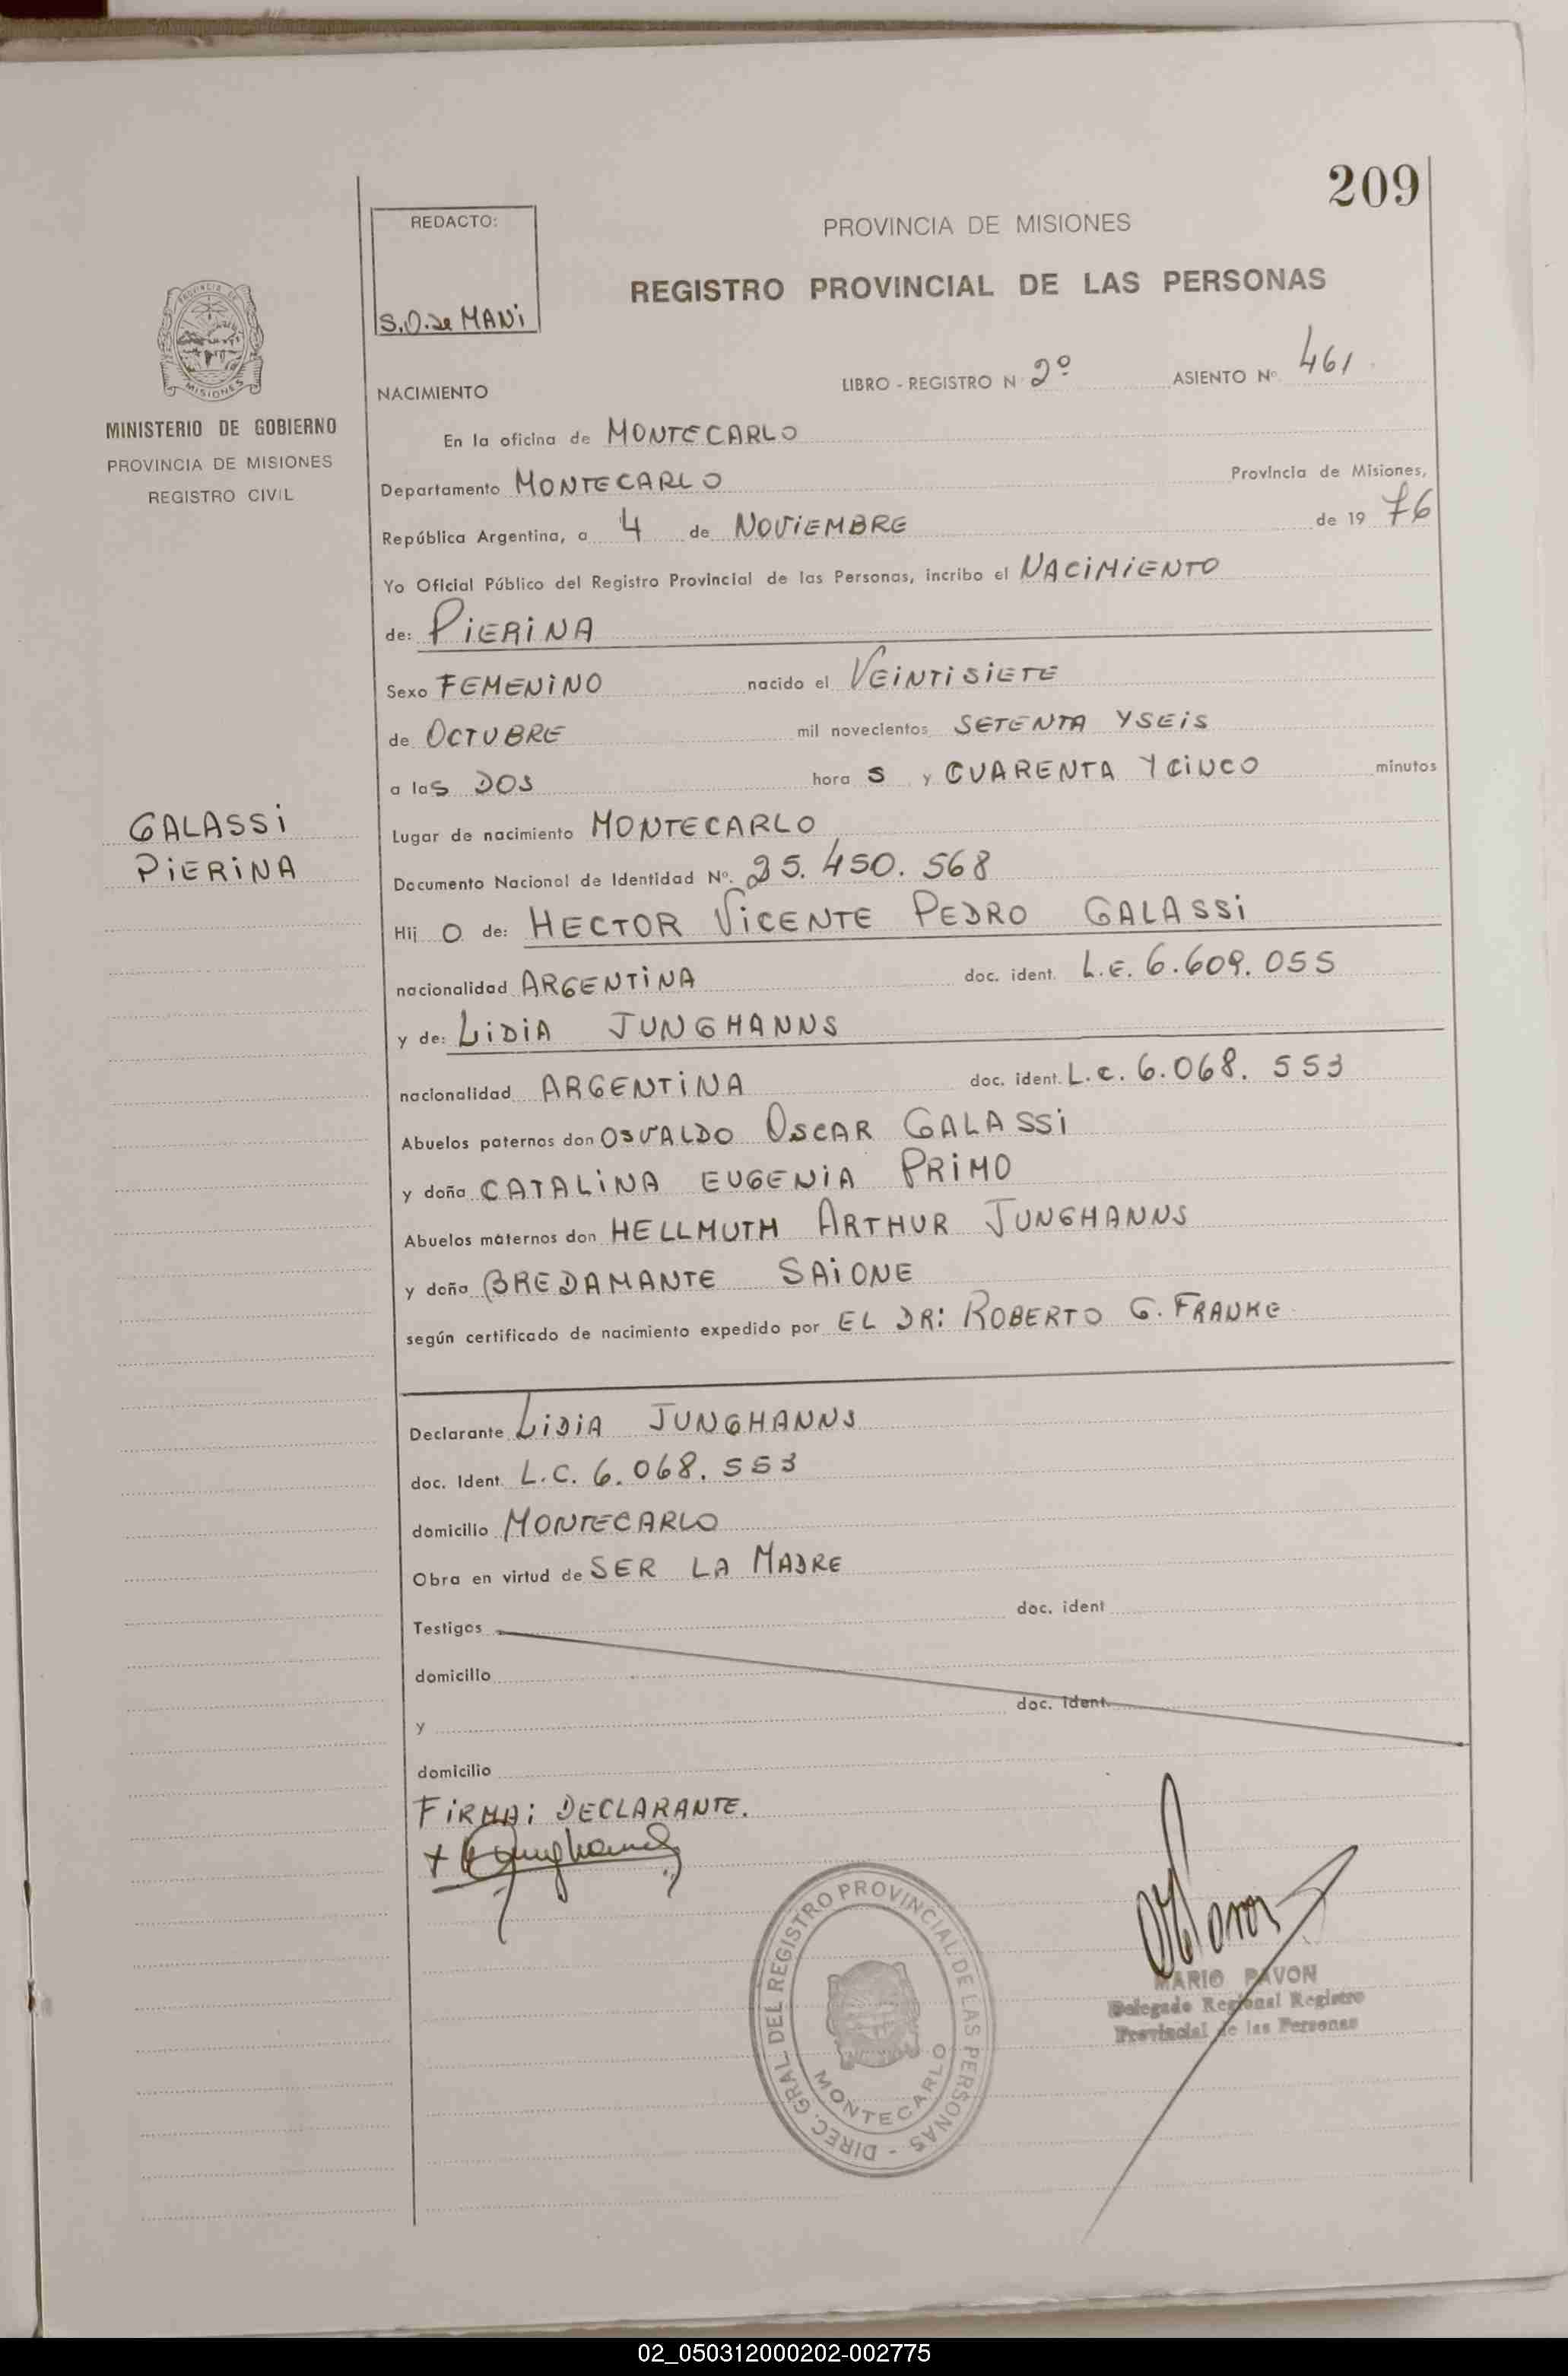 209
REDACTO:
S.O. de MANi
PROVINCIA DE MISIONES
REGISTRO PROVINCIAL DE LAS PERSONAS
MISIONES
MINISTERIO DE GOBIERNO
PROVINCIA DE MISIONES
REGISTRO CIVIL
NACIMIENTO LIBRO - REGISTRO N 2º ASIENTO Nº 461
En la oficina de MONTECARLO
Departamento MONTECARLO Provincia de Misiones,
República Argentina, a 4 de NOViEMBRE de 19 76
Yo Oficial Público del Registro Provincial de las Personas, incribo el NACiMiENTO
de: PiERiNA
Sexo FEMENiNO nacido el VEiNTiSiETE
de OCTUBRE mil novecientos SETENTA YSEiS
a las DOS hora S y CUARENTA YCiNCO minutos
GALASSi
PiERiNA
Lugar de nacimiento MONTECARLO
Documento Nacional de Identidad Nº. 25.450.568
Hij O de: HECTOR ViCENTE PEDRO GALASSi
nacionalidad ARGENTiNA doc. ident. L.E. 6.609.055
y de: LiDiA JUNGHANNS
nacionalidad ARGENTiNA doc. ident. L.C. 6.068.553
Abuelos paternos don OSVALDO OSCAR GALASSi
y doña CATALiNA EUGENiA PRiMO
Abuelos maternos don HELLMUTH ARTHUR JUNGHANNS
y doña BREDAMANTE SAiONE
según certificado de nacimiento expedido por EL DR: ROBERTO G. FRANKE
Declarante LiDiA JUNGHANNS
doc. Ident. L.C. 6.068.553
domicilio MONTECARLO
Obra en virtud de SER LA MADRE
Testigos doc. ident
domicilio
y doc. Ident.
domicilio
FiRMA: DECLARANTE.
DIREC. GRAL DEL REGISTRO PROVINCIAL DE LAS PERSONAS -
MONTECARLO
MARIO PAVON
Delegado Regional Registro
Provincial de las Personas
02_050312000202-002775